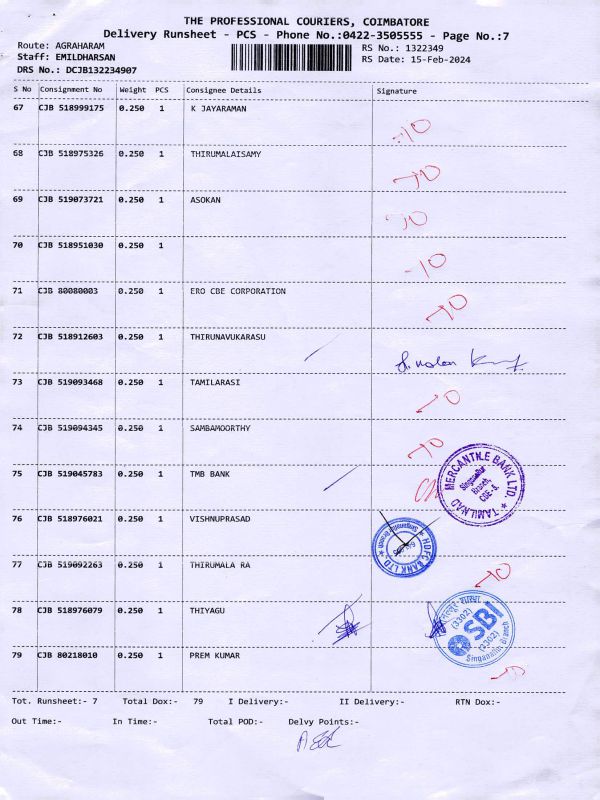 THE PROFESSIONAL COURIERS, COIMBATORE
Delivery Runsheet - PCS - Phone No.:0422-3505555 - Page No.:7
Route: AGRAHARAM RS No.: 1322349
Staff: EMILDHARSAN RS Date: 15-Feb-2024
DRS No.: DCJB132234907
S No Consignment No Weight PCS Consignee Details Signature
67 CJB 518999175 0.250 1 K JAYARAMAN
68 CJB 518975326 0.250 1 THIRUMALAISAMY
69 CJB 519073721 0.250 1 ASOKAN
70 CJB 518951030 0.250 1
71 CJB 80080003 0.250 1 ERO CBE CORPORATION
72 CJB 518912603 0.250 1 THIRUNAVUKARASU
73 CJB 519093468 0.250 1 TAMILARASI
74 CJB 519094345 0.250 1 SAMBAMOORTHY
75 CJB 519045783 0.250 1 TMB BANK
TAMILNAD MERCANTILE BANK LTD
Singanallur
Branch,
CBE-5.
76 CJB 518976021 0.250 1 VISHNUPRASAD
HDFC BANK LTD.
Singanallur Branch
77 CJB 519092263 0.250 1 THIRUMALA RA
78 CJB 518976079 0.250 1 THIYAGU
(3302)
SBI
(3302)
Singanallur Branch
79 CJB 80218010 0.250 1 PREM KUMAR
Tot. Runsheet:- 7 Total Dox:- 79 I Delivery:- II Delivery:- RTN Dox:-
Out Time:- In Time:- Total POD:- Delvy Points:-